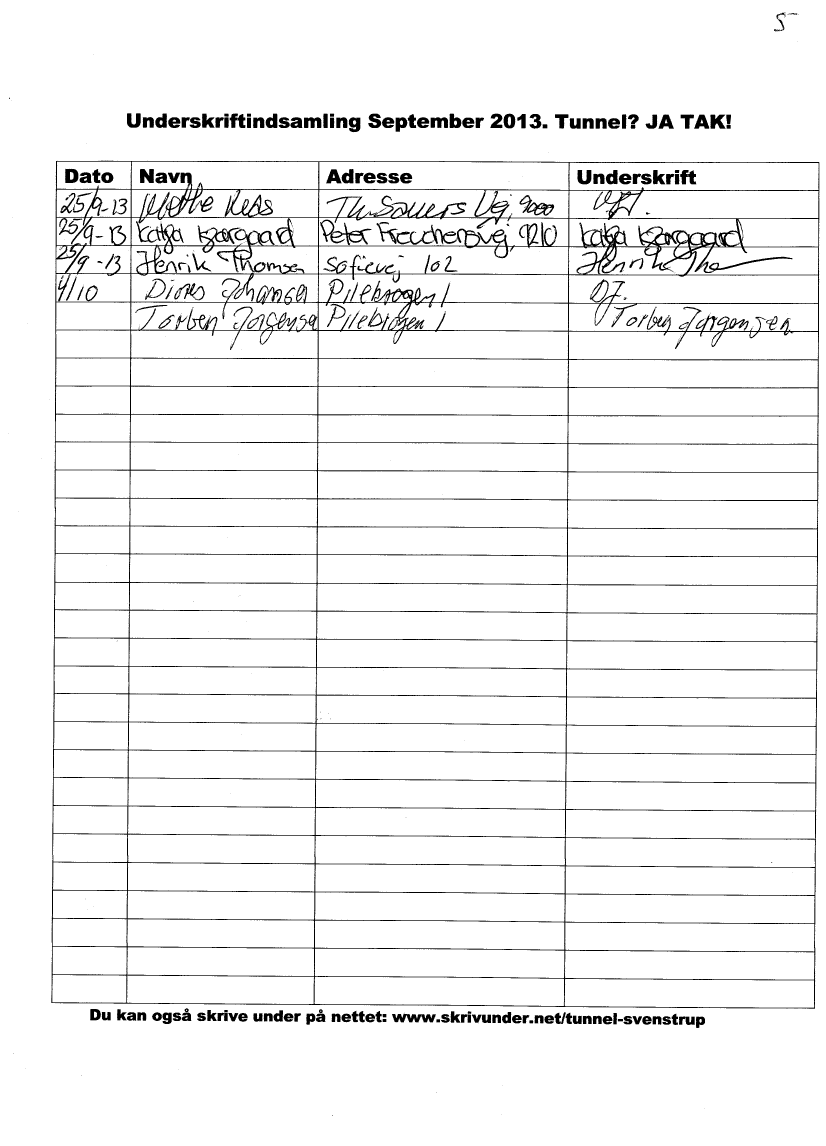 5
Underskriftindsamling September 2013. Tunnel? JA TAK!
Dato Navn Adresse Underskrift
25/9-13 Vej, 9000
25/9-13 Katja Kjærgaard Peter Freuchensvej, 9210 Katja Kjærgaard
25/9-13 Henrik Thomsen Sofievej 102 Henrik Tho
4/10 Johansen Pilebrogen 1 DJ.
Torben Jørgense Pilebrogen 1 Torben Jørgensen
Du kan også skrive under på nettet: www.skrivunder.net/tunnel-svenstrup